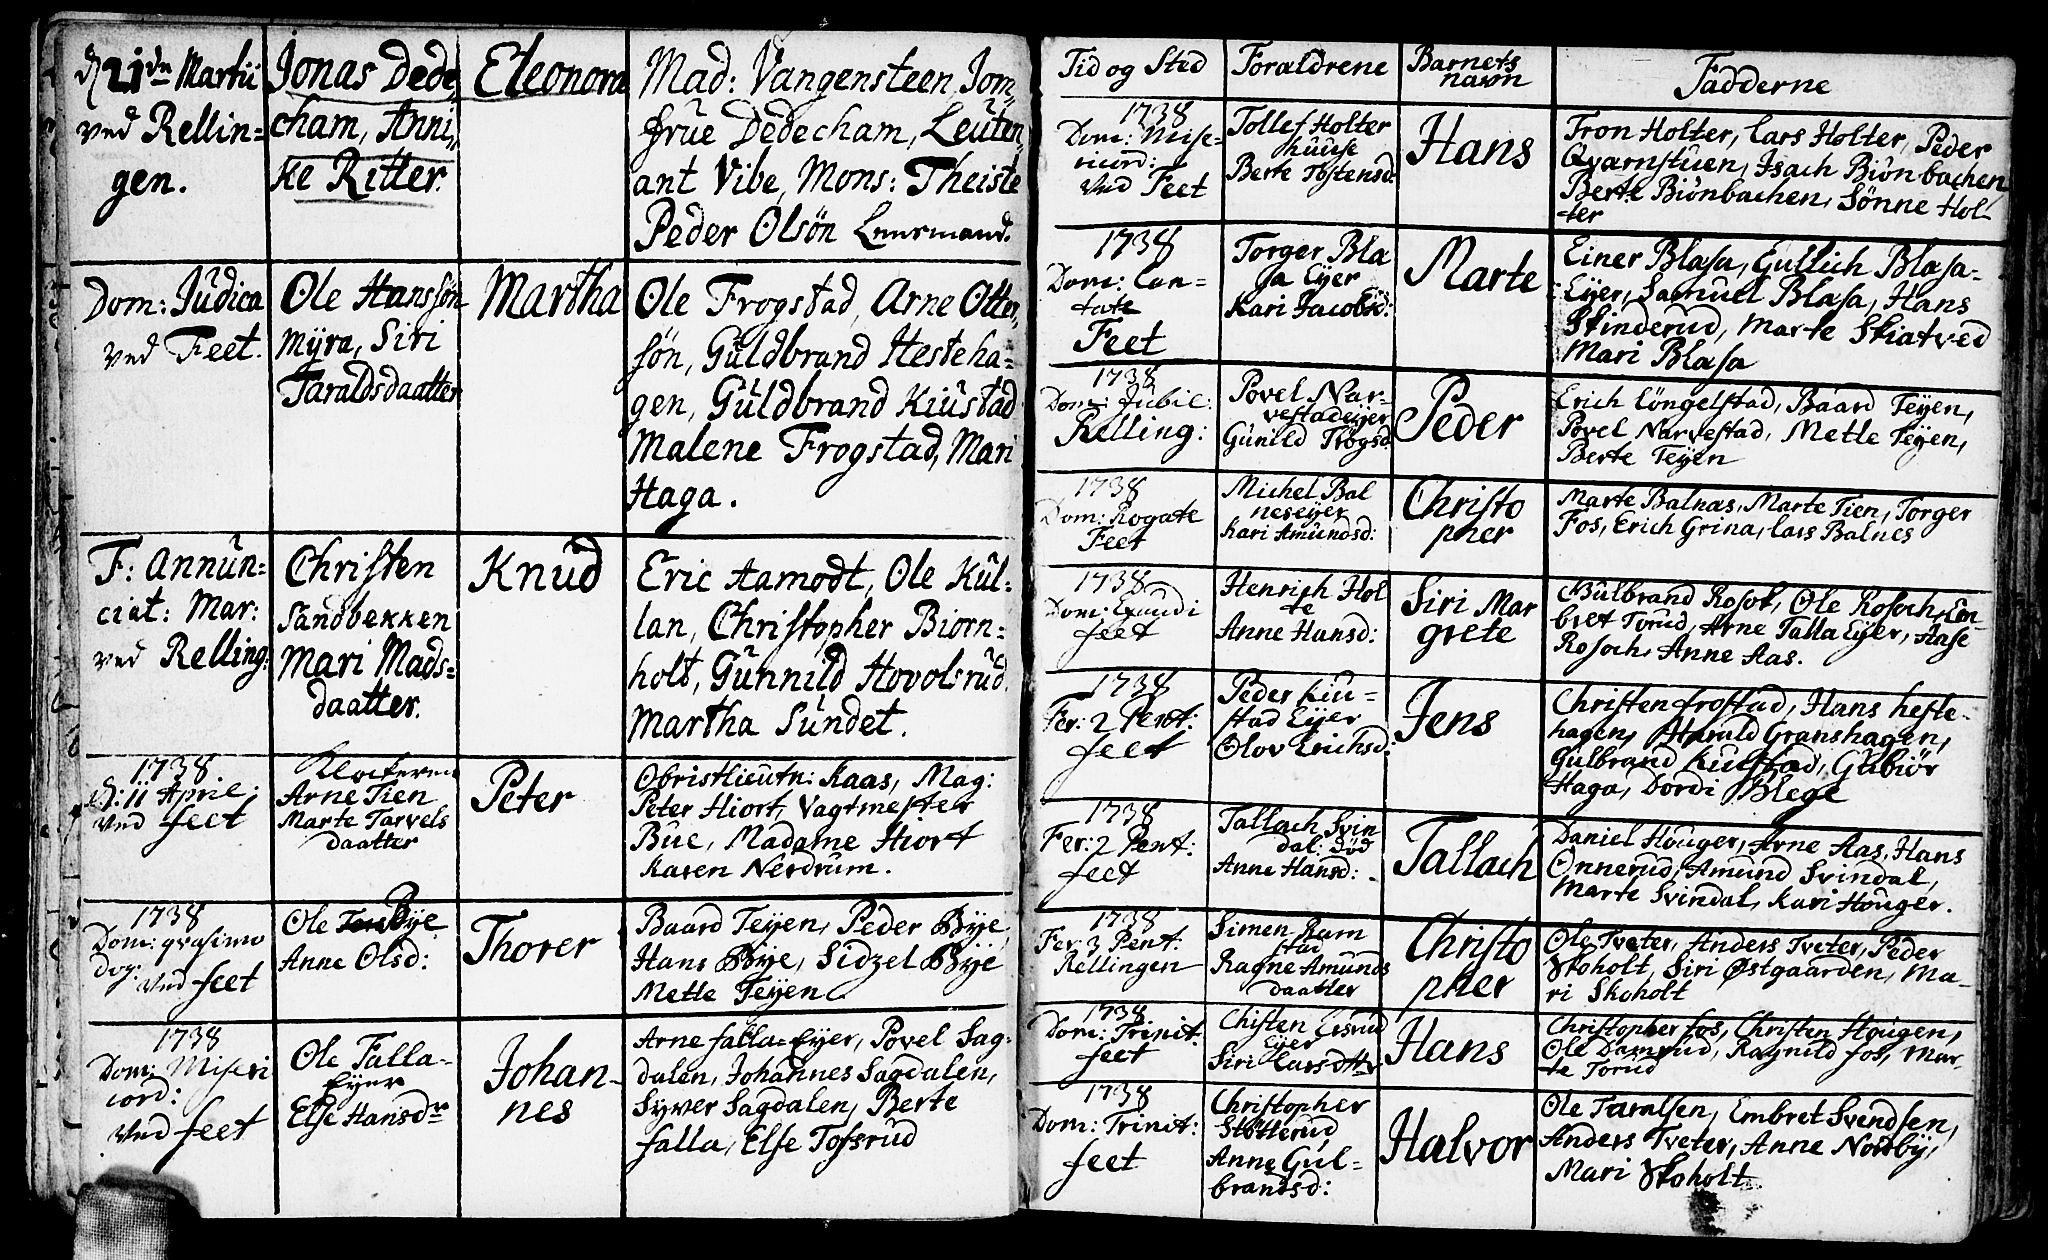 d 21de Martii
ved Rellin=
gen.
Jonas Dede,
cham, Anni,,
ke Ritter.
Eleonora
Mad: Vangensteen, Jom,
frue Dedecham, Leuten,
ant Vibe, Mons: Theiste
Peder Olsön Lensmand.
Dom: Judica
ved Feet.
Ole Hanssön
Myra, Siri
Taraldsdaatter
Martha
Ole Frogstad, Arne Otter,
sön, Guldbrand Hesteha=
gen, Guldbrand Kiustad
Malene Frogstad, Mari
Haga.
F: Annun=
ciat: Mar:
ved Relling:
Christen
Sandbekken
Mari Mads=
daatter.
Knud
Eric Aamodt, Ole Kul=
lan, Christopher Biorn=
holt, Gunnild Hovolsrud.
Martha Sundet.
1738
d: 11 April:
ved feet
Klockeren
Arne Tien
Marte Tarvels
daatter
Peter
Obristlieutn: Kaas, Mag:
Peter Hiort, Vagtmester
Bue, Madame Hiort
Karen Nerdrum.
1738
Dom: qvasimo
dog:
ved feet
Ole Bye
Anne Olsd:
Thorer
Baard Teyen, Peder Bye
Hans Bye, Sidzel Bye
Mette Teyen.
1738
Dom: Miseri
cord:
ved feet
Ole Falla=
Eyer
Else Hansdr
Johan=
nes
Arne falla=Eyer, Povel Sag=
dalen, Johannes Sagdalen,
Syver Sagdalen, Berte
falla, Else Tofsrud
Tid og Sted
Forældrene
Barnets
navn
Fadderne
1738
Dom: Mise=
ricord:
ved Feet
Tollef Holter
huuse
Berte Tostensd:
Hans
Tron Holter, Lars Holter, Peder
Qvarnstuen, Isach Biönbachen
Berte Biönbachen, Sönne Hol=
ter
1738
Dom: Can=
tate
Feet
Torger Bla
sa Eyer
Kari Jacobsd:
Marte
Einer Blasa, Gullich Blasa=
Eyer, Samuel Blasa, Hans
Skinderud, Marte Skiatved
Mari Blasa
1738
Dom: Jubil:
Relling:
Povel Nar=
vestadeyer
Gunild Trogsd:
Peder
Erich Löngelstad, Baard Teyen,
Povel Narvestad, Mette Teyen,
Berte Teyen
1738
Dom: Rogate
Feet
Michel Bal
neseyer
Kari Amundsd:
Christo
pher
Marte Balnas, Marte Tien, Torger
Fos, Erich Grina, Lars Balnes
1738
Dom: Exaudi
feet
Henrich Hol
te
Anne Hansd:
Siri Mar
grete
Gulbrand Rosok, Ole Rosoch, Em=
bret Torud, Arne Talla Eyer, Aase
Rosoch, Anne Aas.
1738
Fer: 2 Pent:
feet
Peder Kiu=
stad Eyer
Olov Erichsd:
Jens
Christen frostad, Hans heste=
hagen, Harald Granshagen,
Gulbrand Kiustad, Gubiör
Haga, Dordi Blege
1738
Fer: 2 Pent:
feet
Tallach Svin
dal: död
Anne Hansd:
Tallach
Daniel Houger, Arne Aas, Hans
Onnerud, Amund Svindal,
Marte Svindal, Kari Houger.
1738
Fer: 3 Pent:
Rellingen
Simen Ram
stad
Ragne Amunds
daatter
Christo
pher
Ole Tveter, Anders Tveter, Peder
Skoholt, Siri Østgaarden, Ma=
ri Skoholt
1738
Dom: Trinit:
feet
Chisten Ersrud
Eyer
Siri Larsdttr
Hans
Christopher fos, Christen Hougen,
Ole Damrud, Ragnild fos, Mar=
te Torud
1738
Dom: Trinit:
feet
Christopher
Stötterud,
Anne Gul=
brandsd:
Halvor
Ole Taralsen, Embret Svendsen,
Anders Tveter, Anne Nordby,
Mari Skoholt